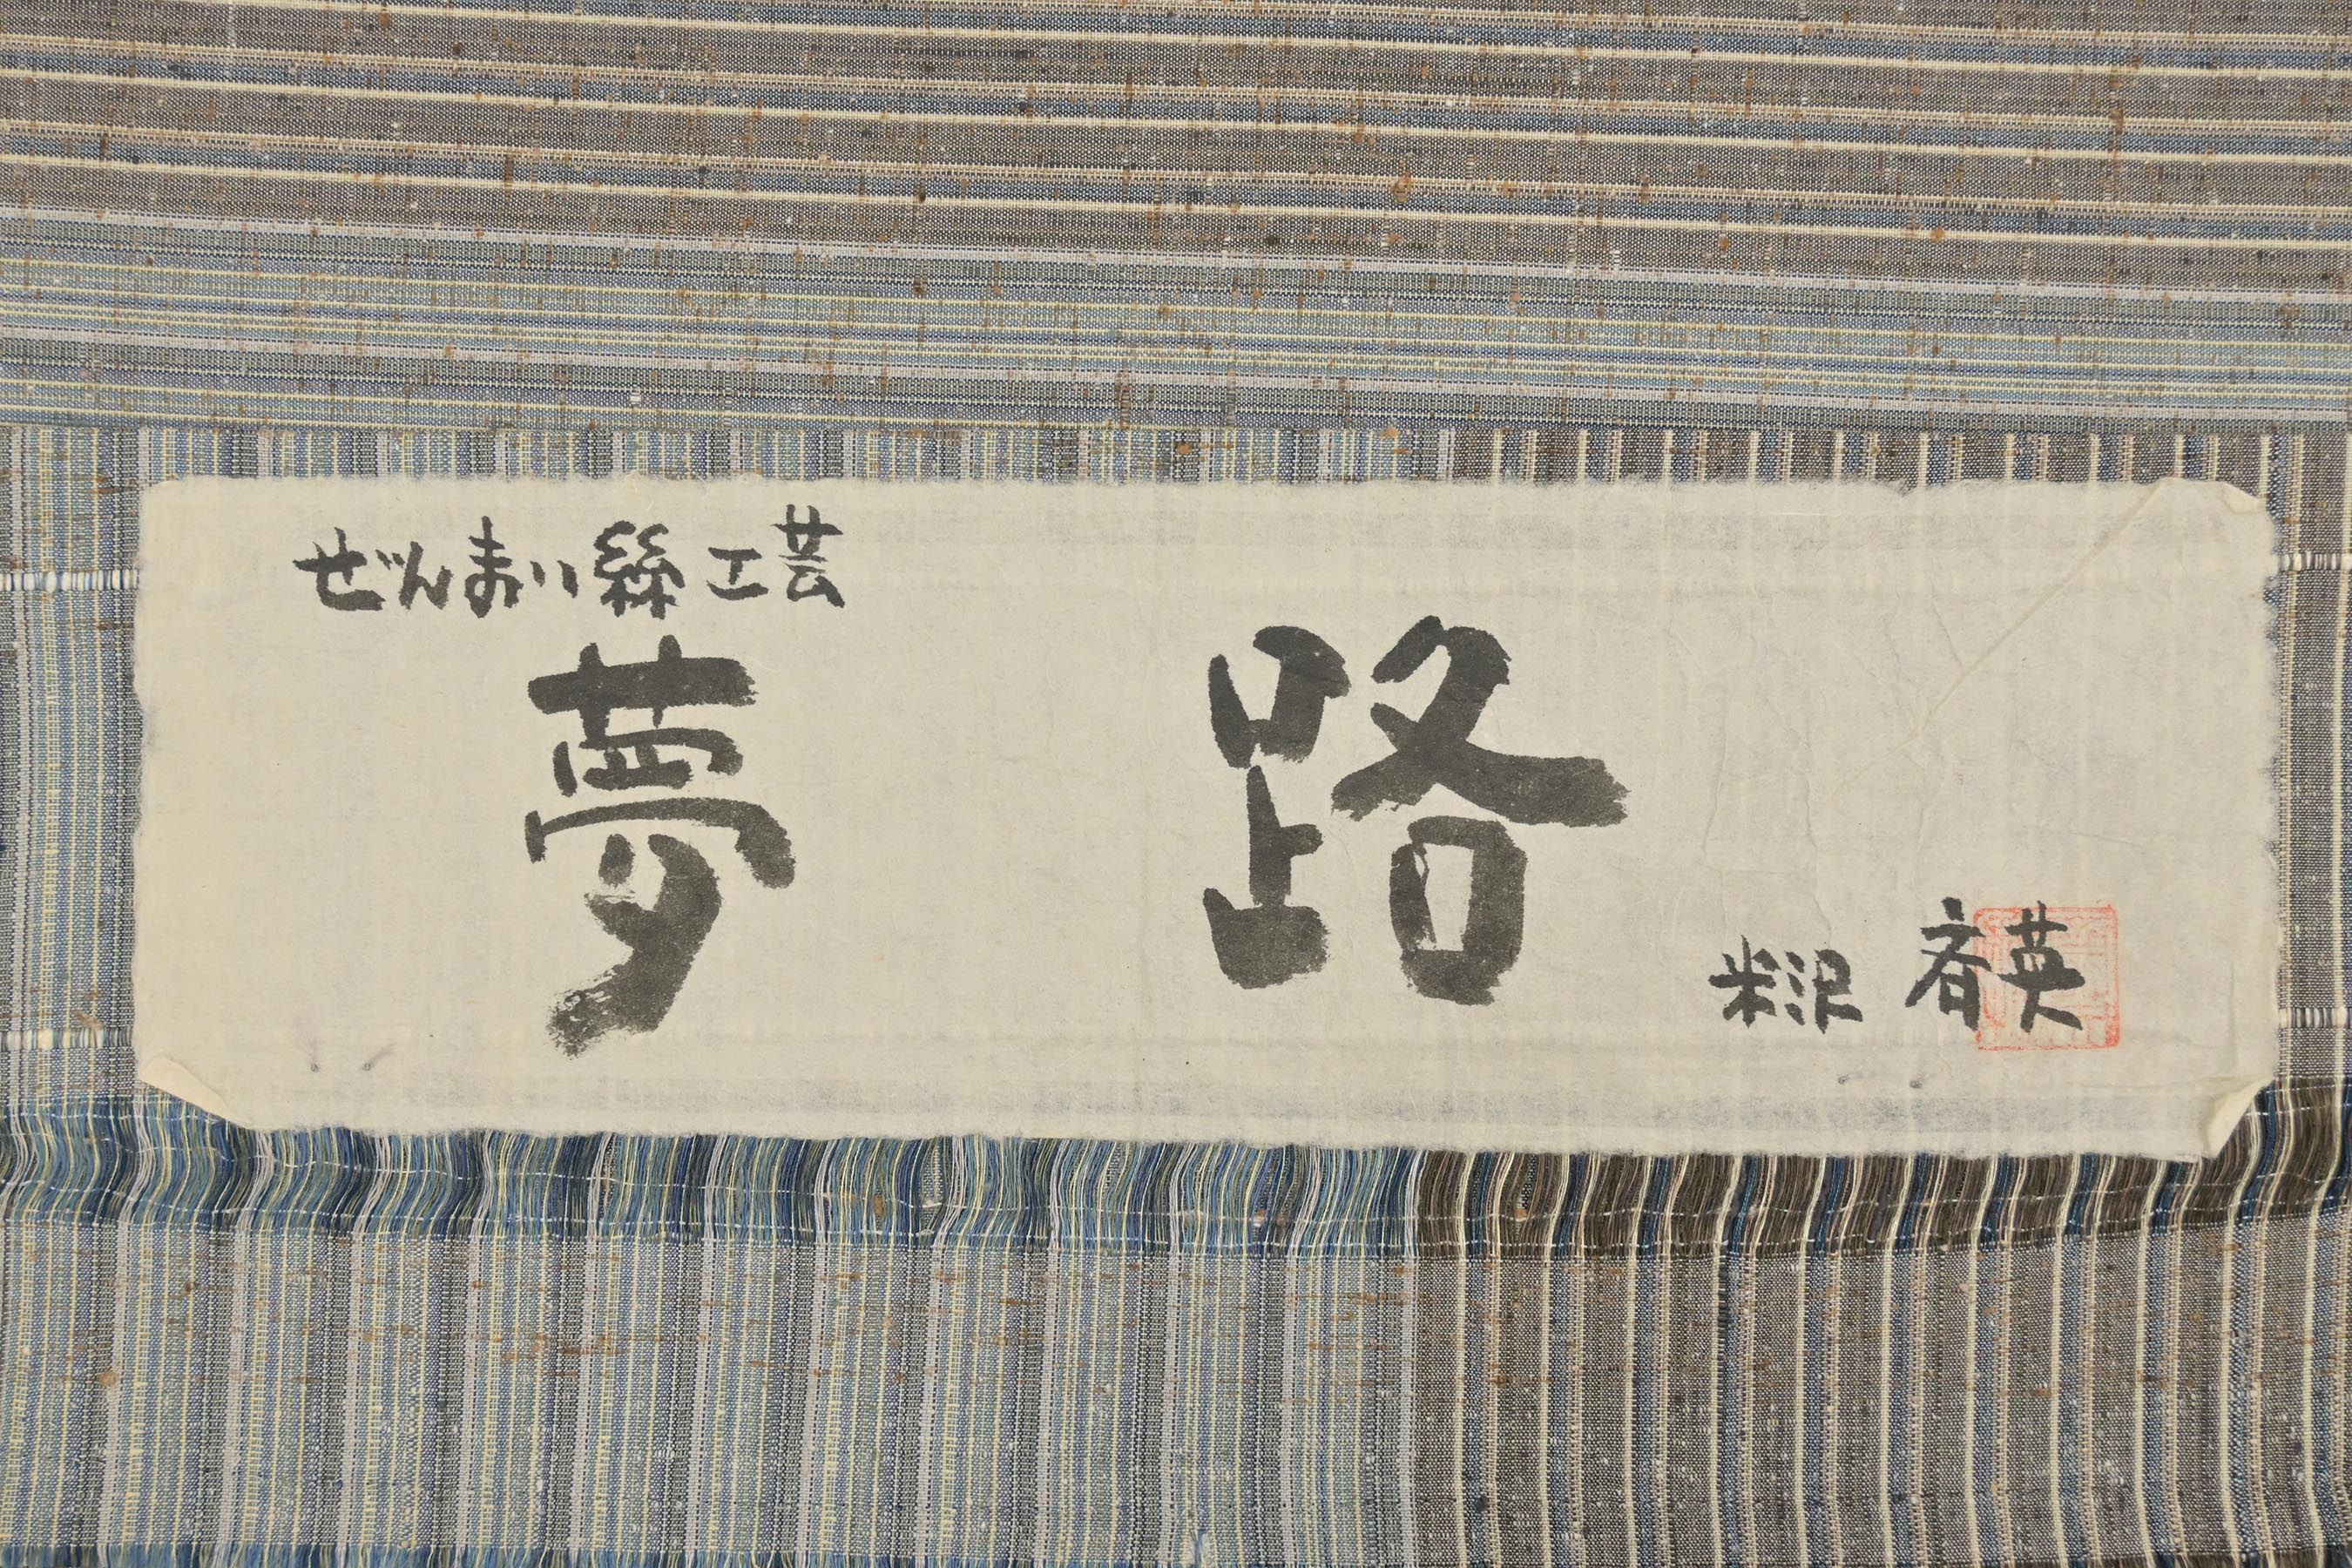 ぜんまい絲工芸
夢路
米沢 斉英